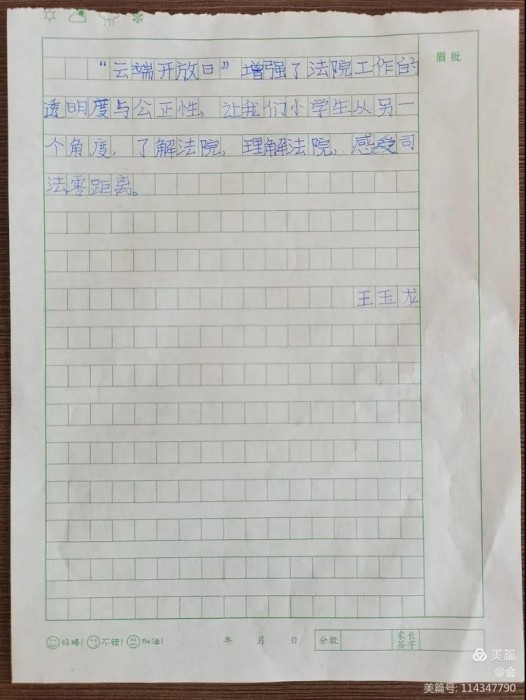 眉批
“云端开放日”增强了法院工作的
透明度与公正性，让我们小学生从另一
个角度，了解法院，理解法院，感受司
法零距离。
王玉龙
好棒！不错！加油！
年 月 日
分数
家长签字
美篇
@会
美篇号：114347790